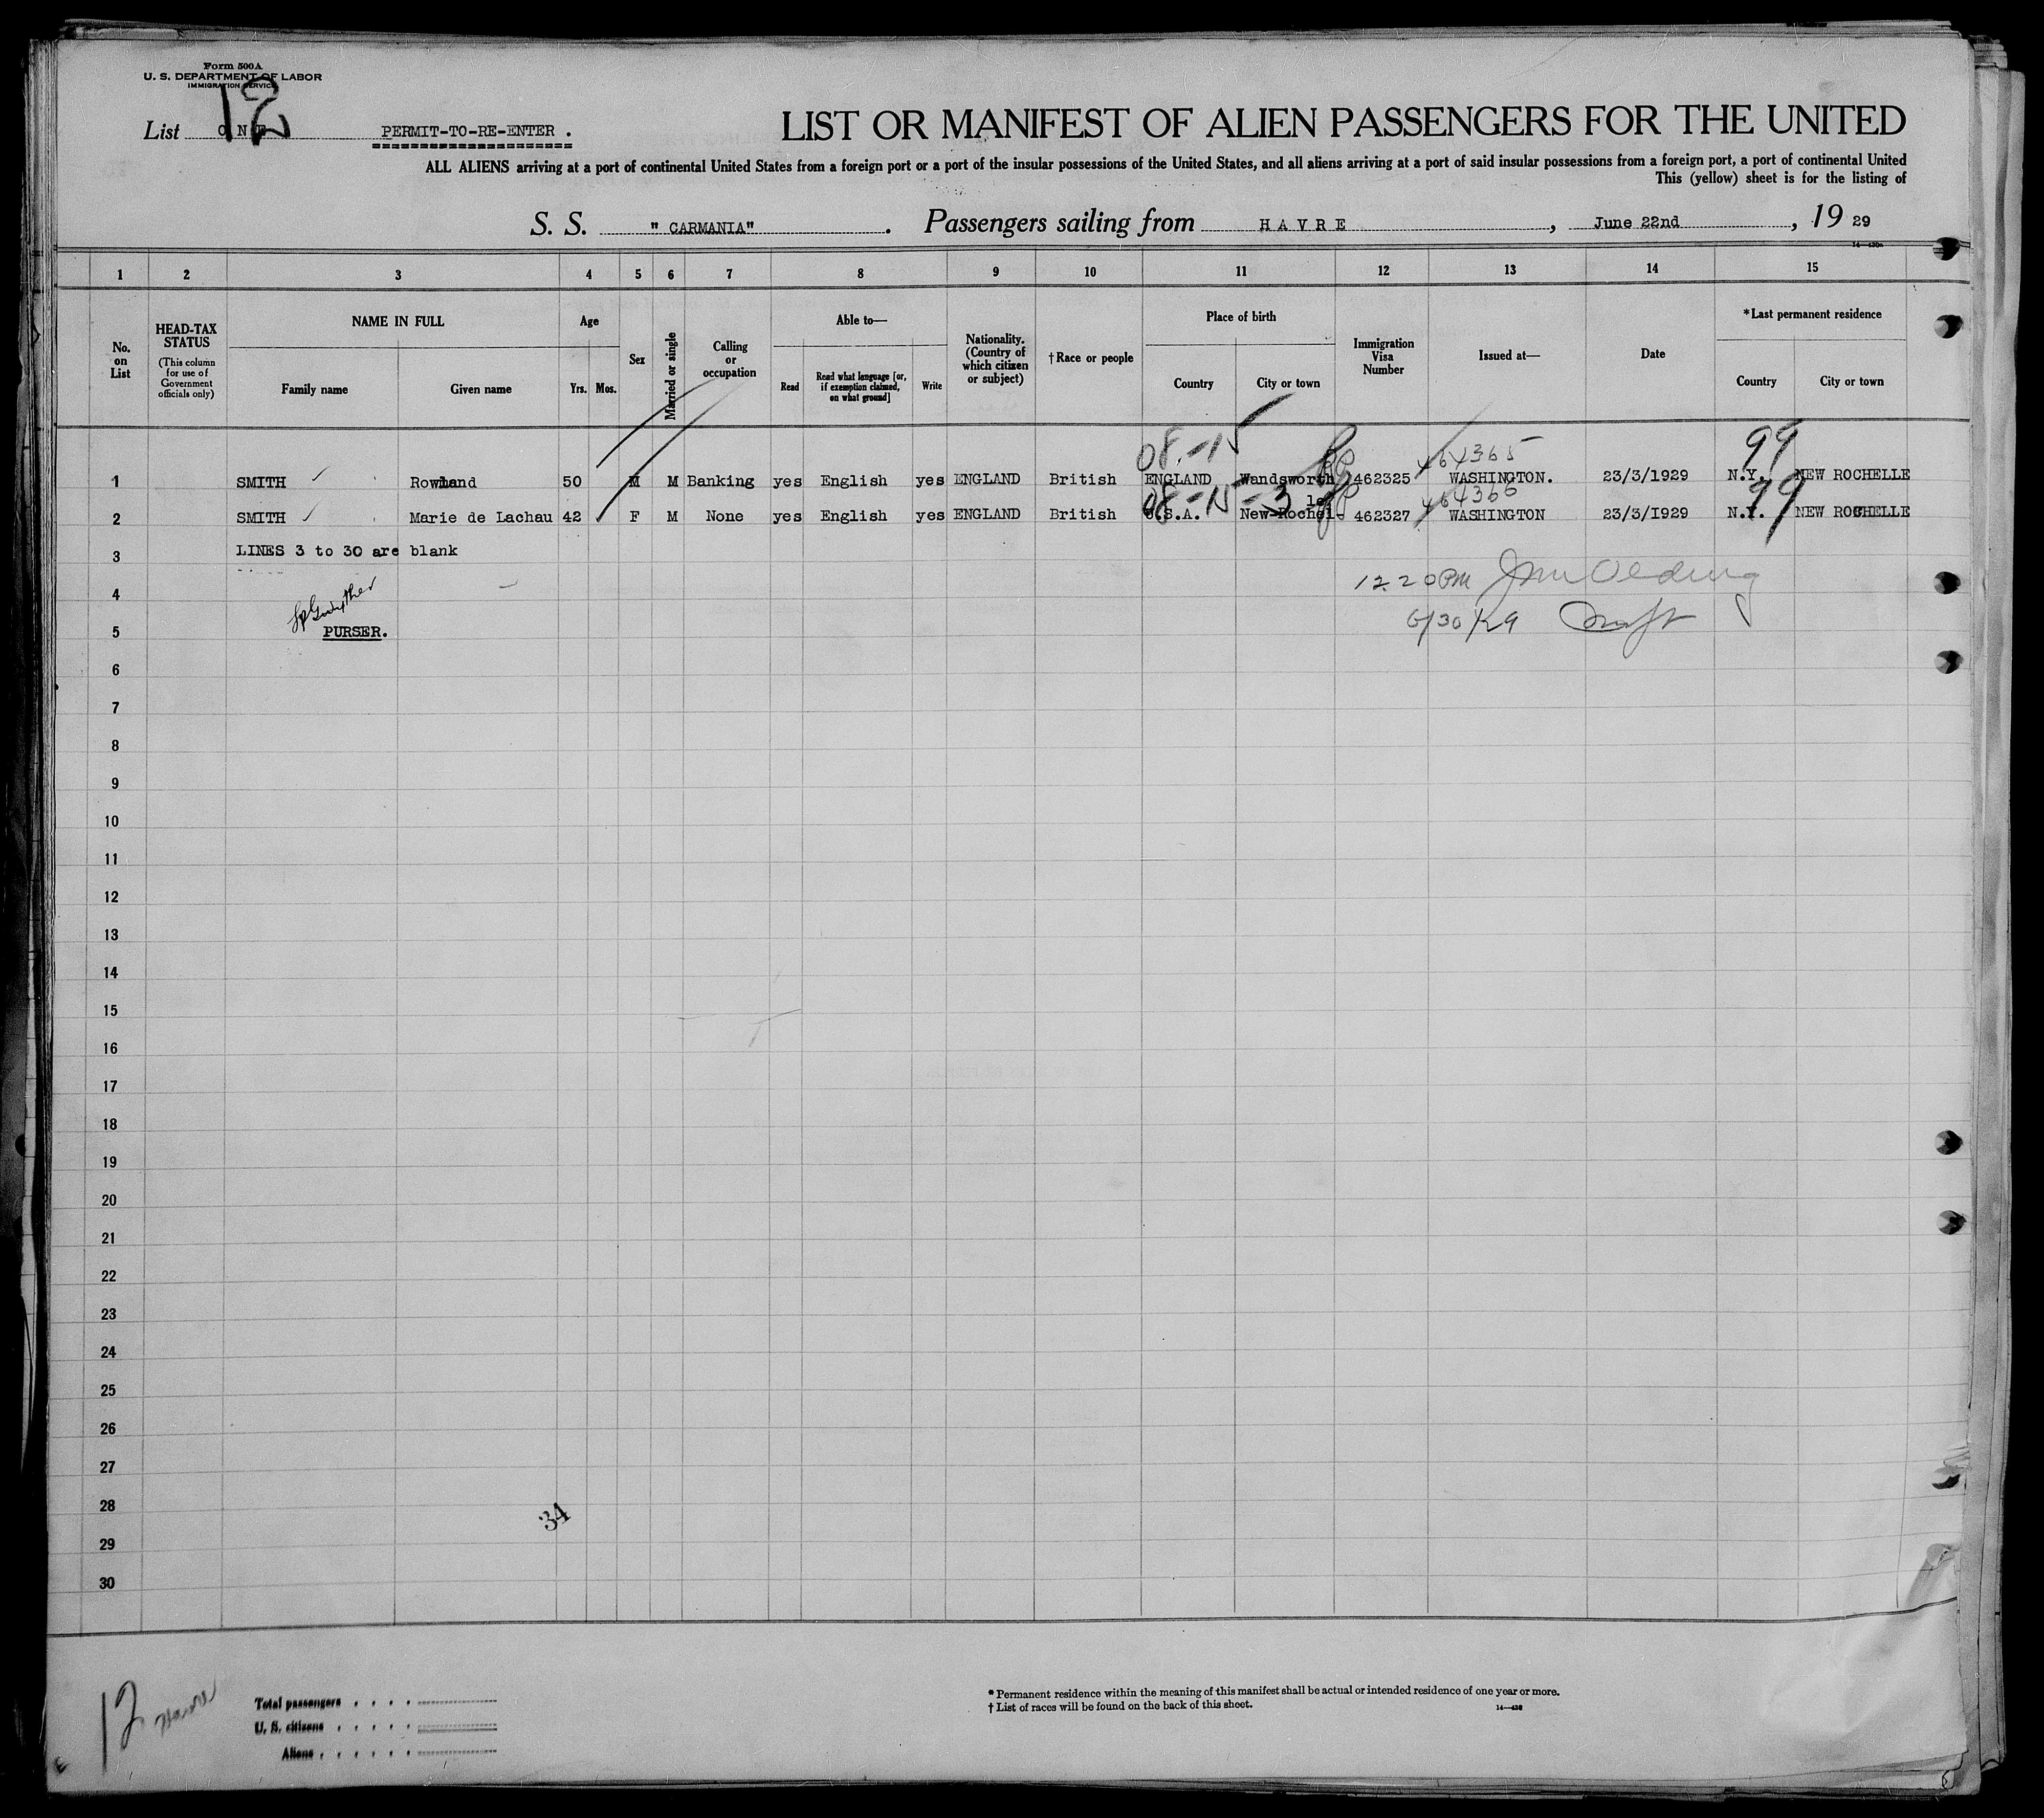 Form 500A
U. S. DEPARTMENT OF LABOR
IMMIGRATION SERVICE
12
List ONE PERMIT-TO-RE-ENTER .
LIST OR MANIFEST OF ALIEN PASSENGERS FOR THE UNITED
ALL ALIENS arriving at a port of continental United States from a foreign port or a port of the insular possessions of the United States, and all aliens arriving at a port of said insular possessions from a foreign port, a port of continental United
This (yellow) sheet is for the listing of
S. S. " CARMANIA" . Passengers sailing from HAVRE , June 22nd , 19 29
1 2 3 4 5 6 7 8 9 10 11 12 13 14 15
No. on List
HEAD-TAX STATUS
(This column for use of Government officials only)
NAME IN FULL
Family name
Given name
Age
Yrs.
Mos.
Sex
Married or single
Calling or occupation
Able to—
Read
Read what language [or, if exemption claimed, on what ground]
Write
Nationality. (Country of which citizen or subject)
†Race or people
Place of birth
Country
City or town
Immigration Visa Number
Issued at—
Date
*Last permanent residence
Country
City or town
08.-15 464365 99
1 SMITH Rowland 50 M M Banking yes English yes ENGLAND British ENGLAND Wandsworth 462325 WASHINGTON. 23/3/1929 N.Y. NEW ROCHELLE
08-15-3 le 464366 99
2 SMITH Marie de Lachau 42 F M None yes English yes ENGLAND British U.S.A. New-Rochel- 462327 WASHINGTON 23/3/I929 N.Y. NEW ROCHELLE
3 LINES 3 to 30 are blank
4 12 20 PM
5 PURSER. 6/30/29
6
7
8
9
10
11
12
13
14
15
16
17
18
19
20
21
22
23
24
25
26
27
28
34
29
30
12 Havre
Total passengers
U. S. citizens
Aliens
* Permanent residence within the meaning of this manifest shall be actual or intended residence of one year or more.
† List of races will be found on the back of this sheet.